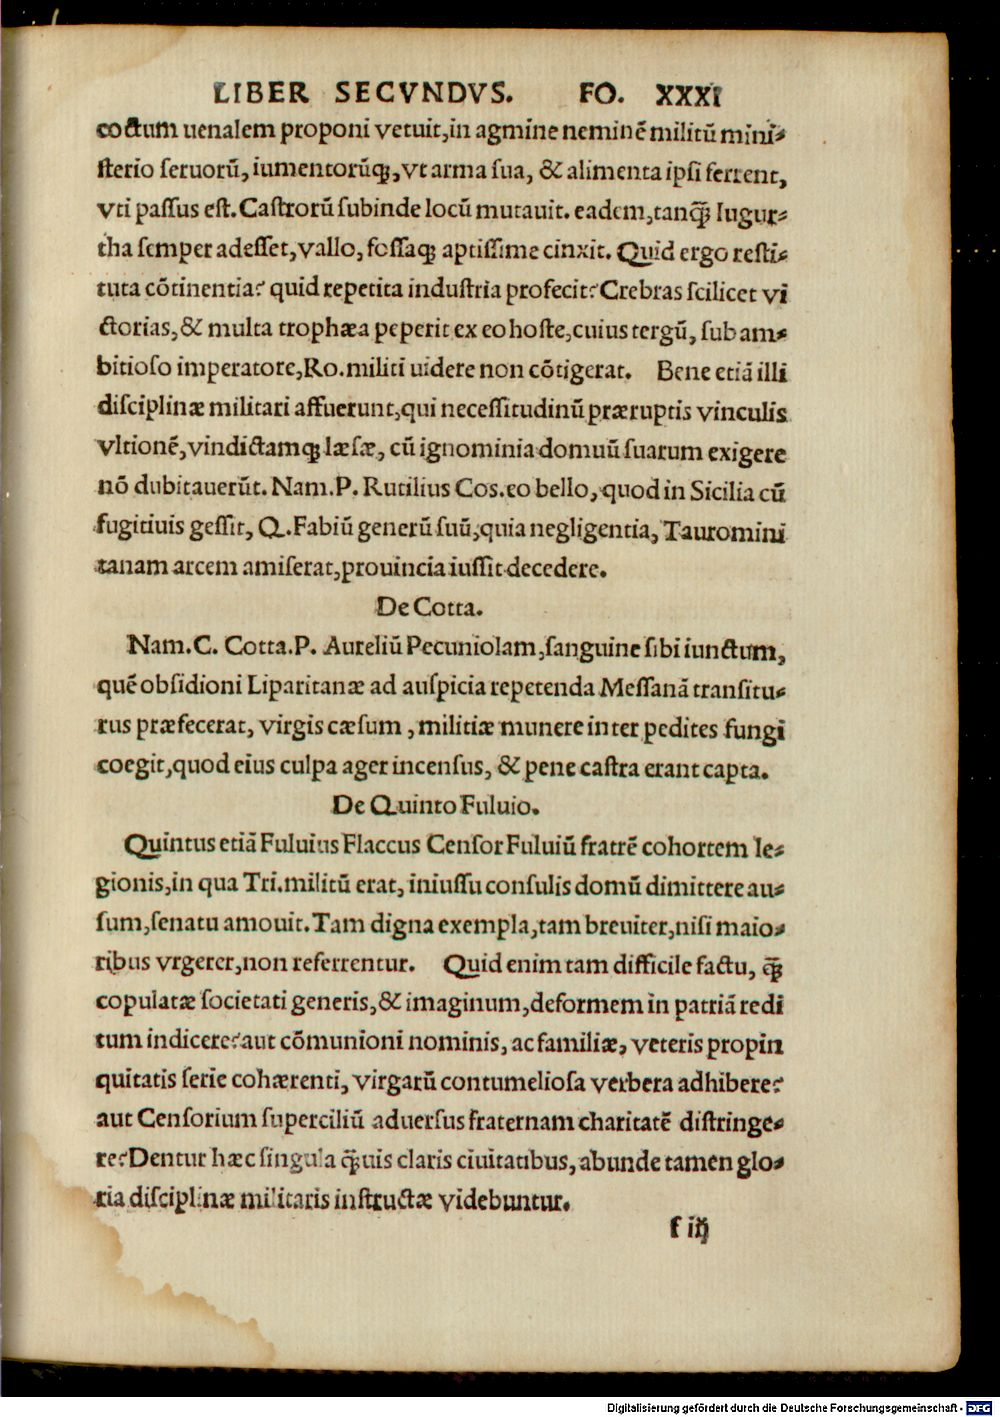 LIBER SECVNDVS. FO. XXXI
coctum uenalem proponi vetuit,in agmine neminē militū mini⸗
ſterio ſeruorū, iumentorūq;,vt arma ſua, & alimenta ipſi ferrent,
vti paſſus eſt. Caſtrorū ſubinde locū mutauit. eadem,tanq̄ Iugur⸗
tha ſemper adeſſet, vallo, foſſaq; aptiſſime cinxit. Quid ergo reſti⸗
tuta cōtinentia? quid repetita induſtria profecit? Crebras ſcilicet vi
ctorias, & multa trophæa peperit ex eo hoſte,cuius tergū, ſub am⸗
bitioſo imperatore,Ro.militi uidere non cōtigerat. Bene etiā illi
diſciplinæ militari affuerunt,qui neceſſitudinū præruptis vinculis
vltionē,vindictamq; læſæ, cū ignominia domuū ſuarum exigere
nō dubitauerūt. Nam.P. Rutilius Cos.eo bello, quod in Sicilia cū
fugitiuis geſſit, Q.Fabiū generū ſuū,quia negligentia, Tauromini
tanam arcem amiſerat,prouincia iuſſit decedere.
De Cotta.
Nam.C. Cotta.P. Aureliū Pecuniolam,ſanguine ſibi iunctum,
quē obſidioni Liparitanæ ad auſpicia repetenda Meſſanā tranſitu⸗
rus præfecerat, virgis cæſum, militiæ munere inter pedites fungi
coegit,quod eius culpa ager incenſus, & pene caſtra erant capta.
De Quinto Fuluio.
Quintus etiā Fuluius Flaccus Cenſor Fuluiū fratrē cohortem le⸗
gionis,in qua Tri.militū erat, iniuſſu conſulis domū dimittere au⸗
ſum,ſenatu amouit. Tam digna exempla,tam breuiter,niſi maio⸗
ribus vrgerer,non referrentur. Quid enim tam difficile factu, q̄
copulatæ ſocietati generis,& imaginum,deformem in patriā redi
tum indicere?aut cōmunioni nominis, ac familiæ, veteris propin
quitatis ſerie cohærenti, virgarū contumelioſa verbera adhibere?
aut Cenſorium ſuperciliū aduerſus fraternam charitatē diſtringe⸗
re? Dentur hæc ſingula q̄uis claris ciuitatibus, abunde tamen glo⸗
ria diſciplinæ militaris inſtructæ videbuntur.
f iij
Digitalisierung gefördert durch die Deutsche Forschungsgemeinschaft - DFG